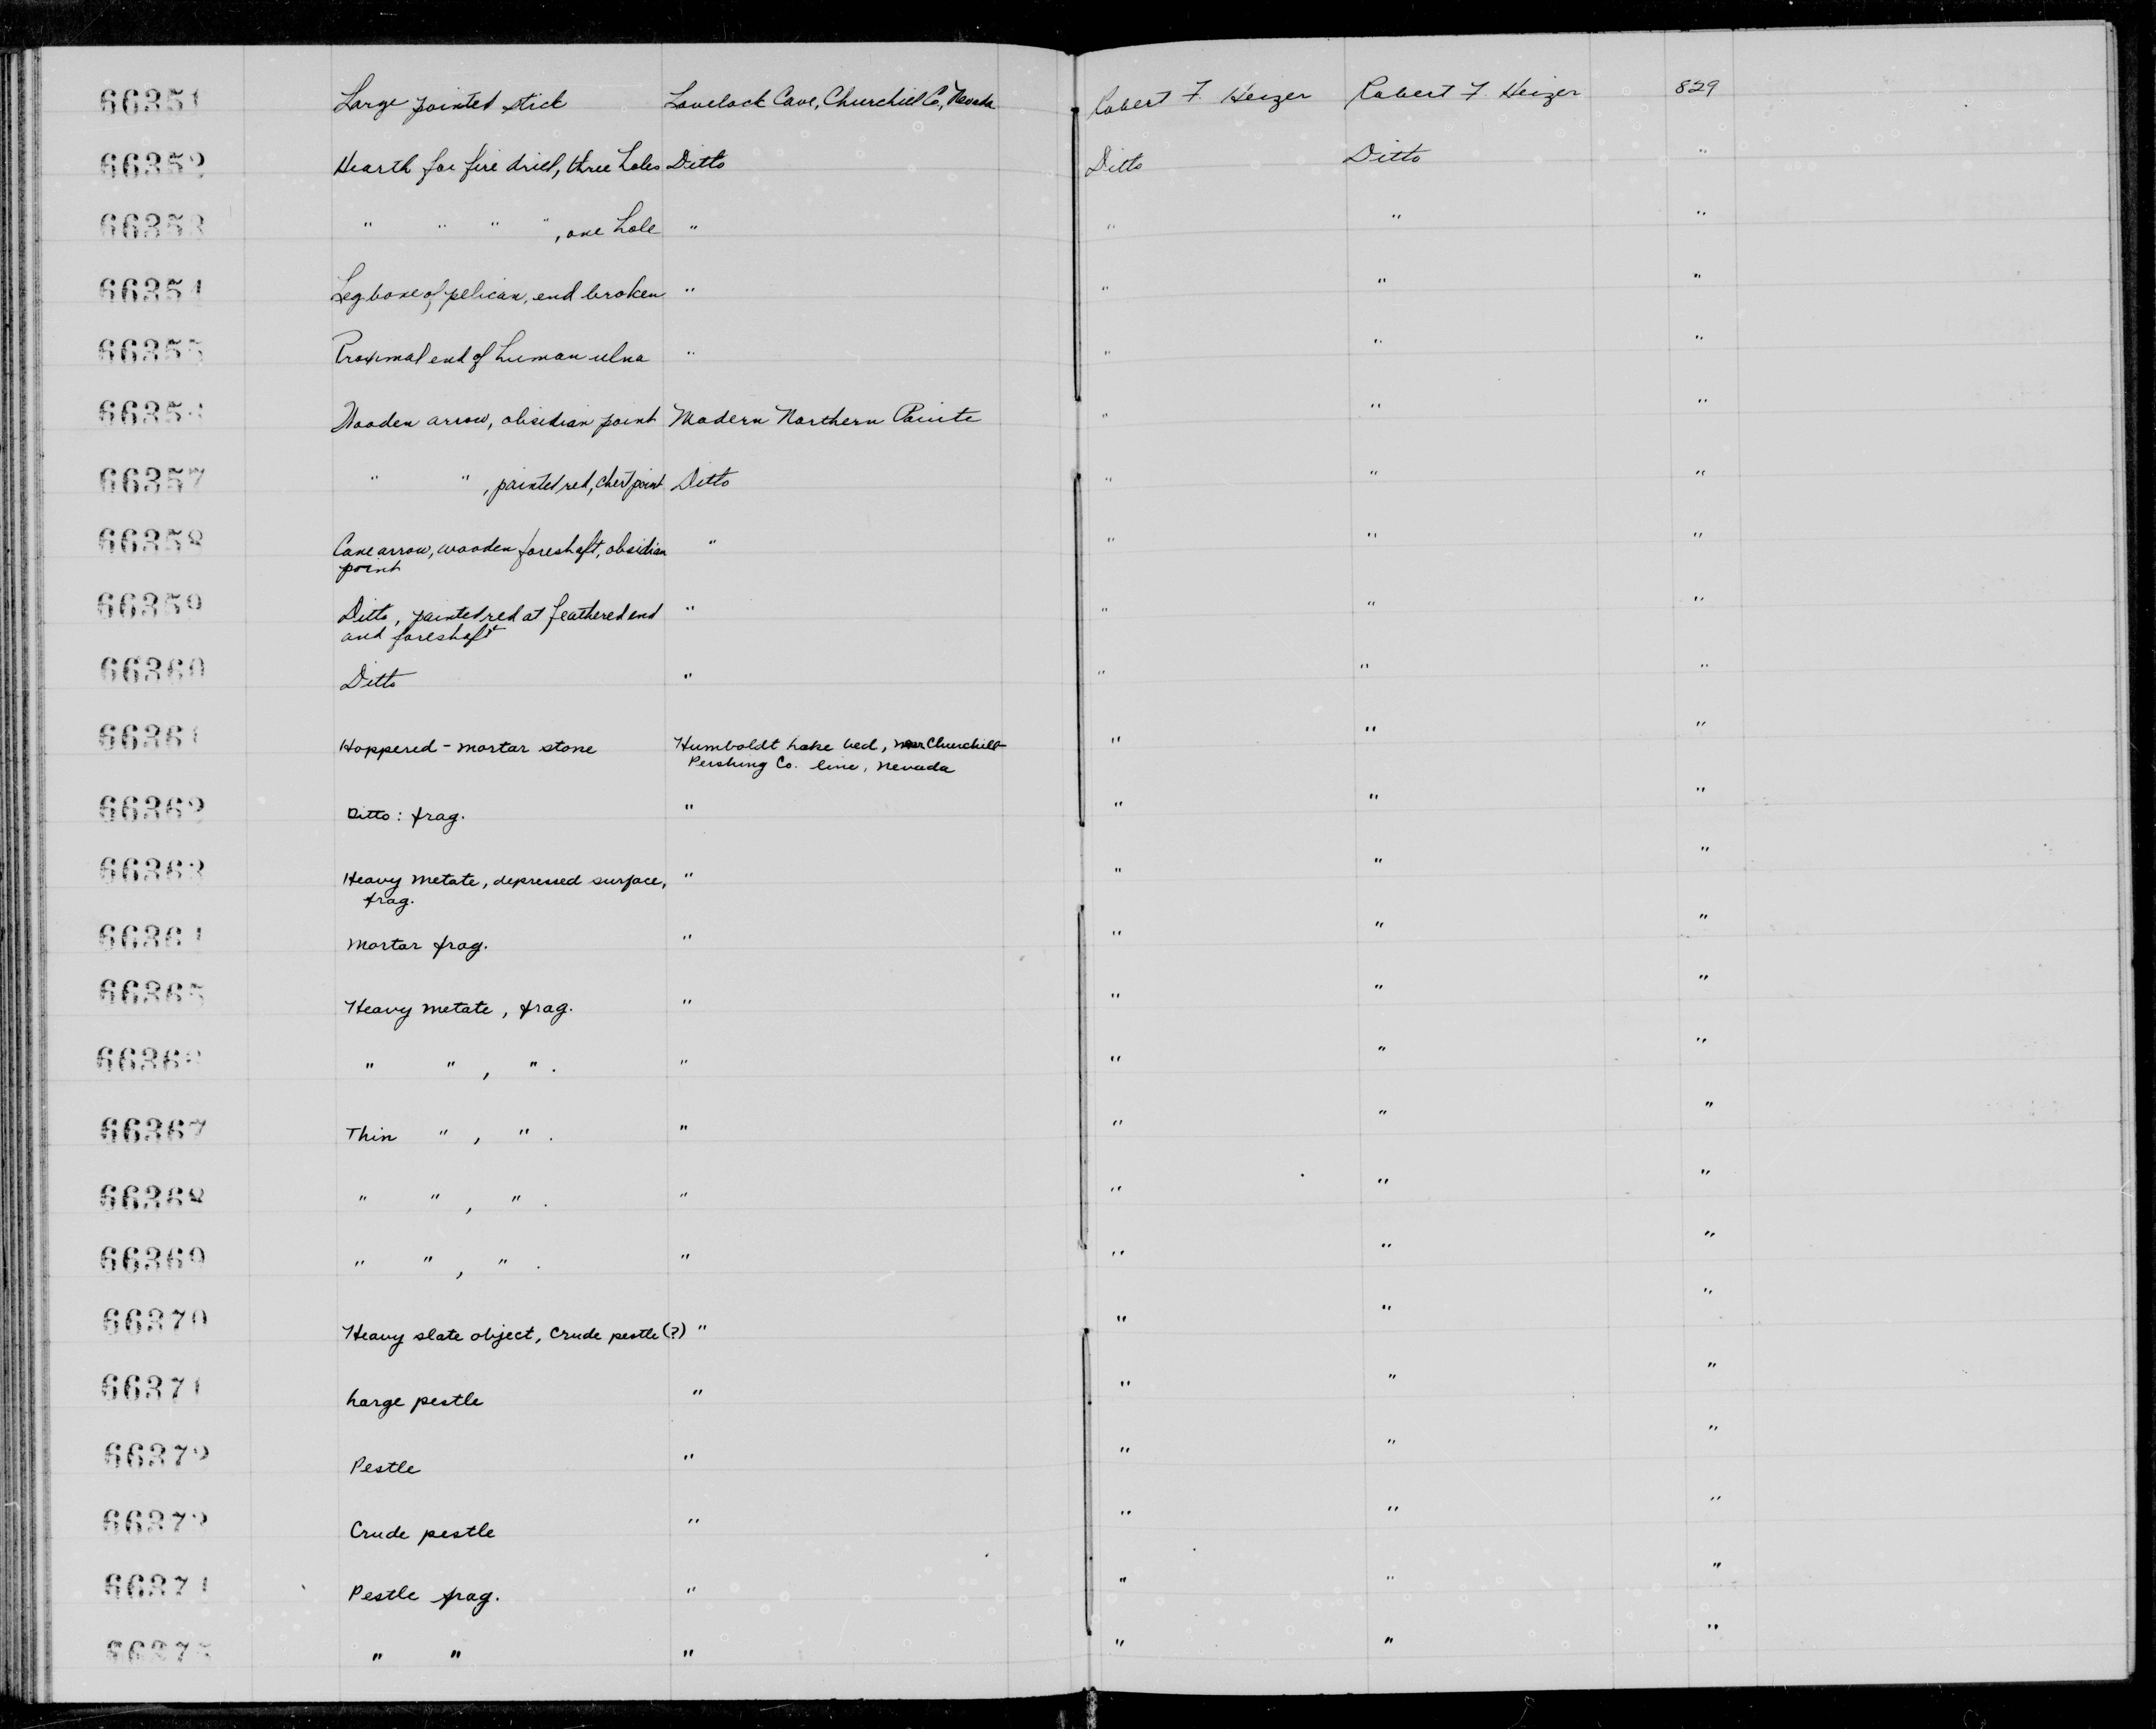 66351 Large pointed stick Lovelock Cave, Churchill Co, Nevada Robert F. Heizer Robert F. Heizer 829
66352 Hearth for fire drill, three holes Ditto Ditto Ditto "
66353 " " " ", one hole " " " "
66354 Leg bone of pelican, end broken " " " "
66355 Proximal end of human ulna " " " "
66356 Wooden arrow, obsidian point Modern Northern Paiute " " "
66357 " ", painted red, chert point Ditto " " "
66358 Cane arrow, wooden foreshaft, obsidian " " " "
point
66359 Ditto, painted red at feathered end " " " "
and foreshaft
66360 Ditto " " " "
66361 Hoppered-mortar stone Humboldt Lake bed, near Churchill- " " "
Pershing Co. line, Nevada
66362 Ditto: frag. " " " "
66363 Heavy metate, depressed surface, " " " "
frag.
66364 Mortar frag. " " " "
66365 Heavy metate, frag. " " " "
66366 " ", ". " " " "
66367 Thin ", ". " " " "
66368 " ", ". " " " "
66369 " ", ". " " " "
66370 Heavy slate object, crude pestle (?) " " " "
66371 Large pestle " " " "
66372 Pestle " " " "
66373 Crude pestle " " " "
66374 Pestle frag. " " " "
66375 " " " " " "